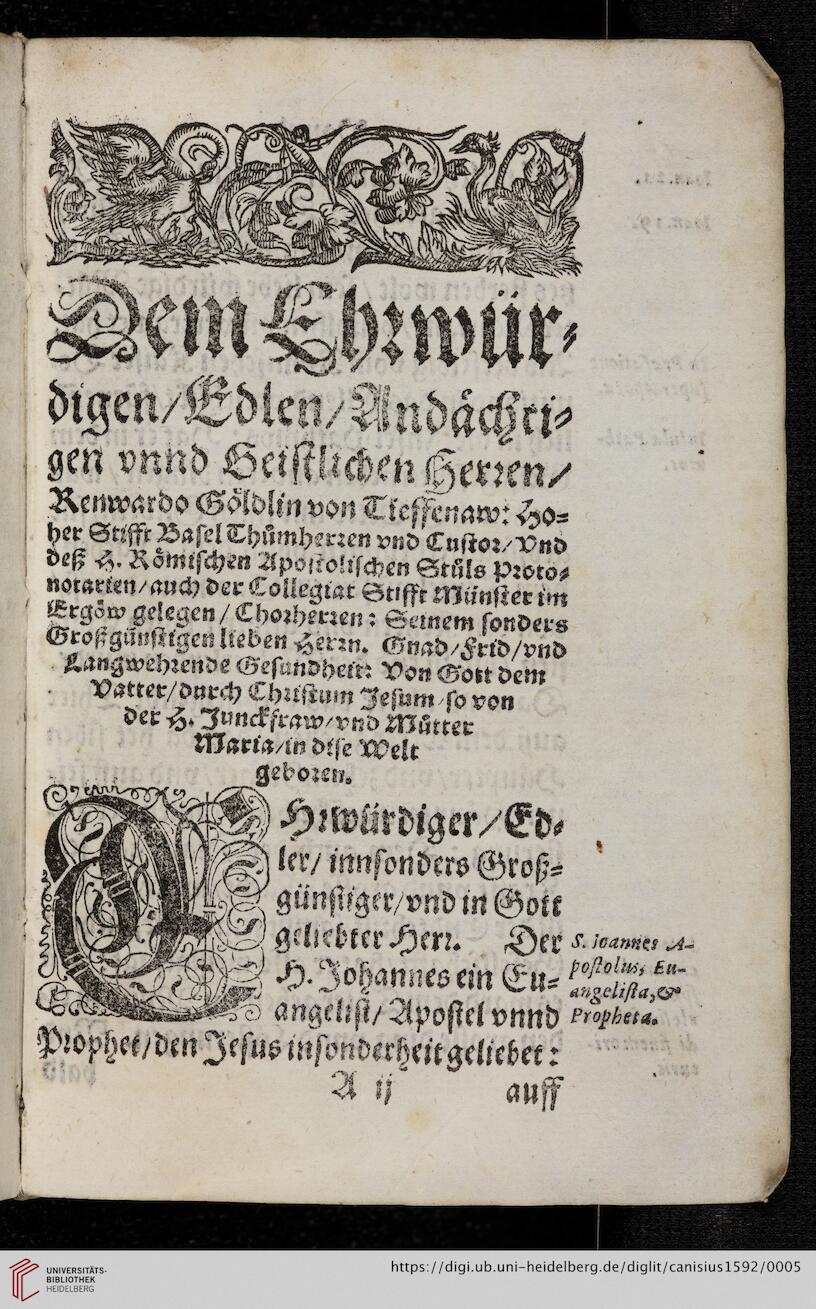 Dem Ehrwür-
digen/Edlen/Andächti-
gen vnnd Geistlichen Herren/
Renwardo Göldlin von Tieffenaw: Ho-
her Stifft Basel Thůmherren vnd Custor/ Vnd
deß H. Römischen Apostolischen Stůls Proto-
notarien/auch der Collegiat Stifft Münster im
Ergöw gelegen/ Chorherren: Seinem sonders
Großgünstigen lieben Herrn. Gnad/Frid/vnd
Langwehrende Gesundheit: Von Gott dem
Vatter/durch Christum Jesum/so von
der H. Junckfraw/vnd Můtter
Maria/in dise Welt
geboren.
EHrwürdiger/Ed-
ler/ innsonders Groß-
günstiger/vnd in Gott
geliebter Herr. Der
H. Johannes ein Eu-
angelist/ Apostel vnnd
Prophet/den Jesus insonderheit geliebet:
S. Ioannes A-
postolus, Eu-
angelista,&
Propheta.
A ij auff
UNIVERSITÄTS-
BIBLIOTHEK
HEIDELBERG
https://digi.ub.uni-heidelberg.de/diglit/canisius1592/0005